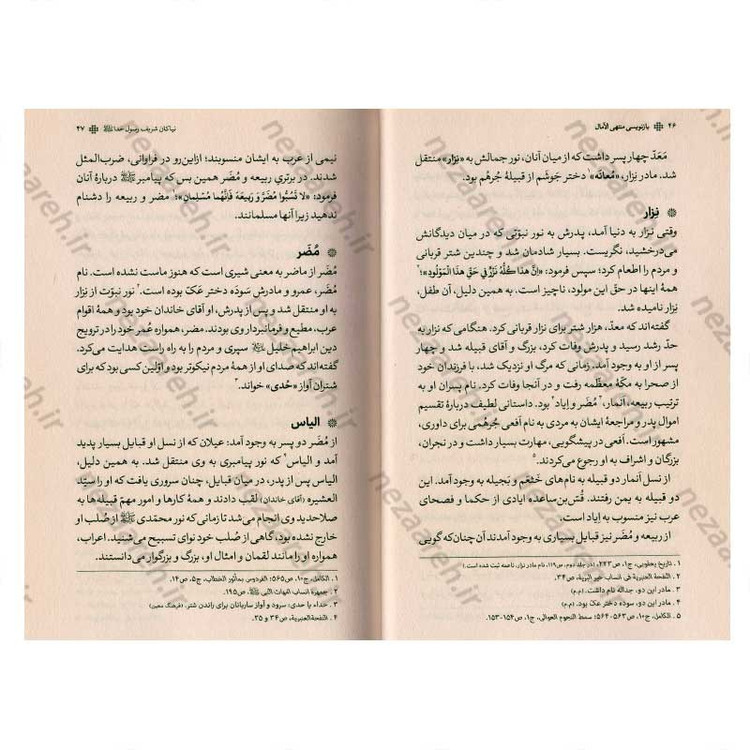 ۲۶ بازنویسی منتهی الآمال
مَعَدّ چهار پسر داشت که از میان آنان، نور جمالش به «نِزار» منتقل
شد. مادر نِزار، «مُعانَه» دختر جَوشَم از قبیله جُرهُم بود.
نِزار
وقتی نزار به دنیا آمد، پدرش به نور نبوّتی که در میان دیدگانش
می‌درخشید، نگریست. بسیار شادمان شد و چندین شتر قربانی
و مردم را اطعام کرد؛ سپس فرمود: «اِنَّ هذا کُلَّهُ نَزْرٌ فی حَقِّ هذَا المَوْلُودِ»؛۱
همهٔ اینها در حقّ این مولود، ناچیز است. به همین دلیل، آن طفل،
نِزار نامیده شد.
گفته‌اند که معدّ، هزار شتر برای نزار قربانی کرد. هنگامی که نزار به
حدّ رشد رسید و پدرش وفات کرد، بزرگ و آقای قبیله شد و چهار
پسر از او به وجود آمد. زمانی که مرگ او نزدیک شد، با فرزندان خود
از صحرا به مکّهٔ معظّمه رفت و در آنجا وفات کرد. نام پسران او به
ترتیب ربیعه، أنمار،۳ مُضَر و اِیاد۴ بود. داستانی لطیف دربارهٔ تقسیم
اموال پدر و مراجعهٔ ایشان به مردی به نام افعی جُرهُمی برای داوری،
مشهور است. اَفعی در پیشگویی، مهارت بسیار داشت و در نجران،
بزرگان و اشراف به او رجوع می‌کردند.۵
از نسل أنمار دو قبیله به نام‌های خَثعَم و بَجیله به وجود آمد. این
دو قبیله به یمن رفتند. قُسّ بن ساعده ایادی از حکما و فصحای
عرب نیز منسوب به اِیاد است.
از ربیعه و مُضَر نیز قبایل بسیاری به وجود آمدند آن چنان که گویی
۱. تاریخ یعقوبی، ج۱، ص۲۲۳؛ (در جلد دوم، ص۱۱۹، نام مادر نزار، ناعمه ثبت شده است.)
۲. النفحة العنبریة فی انساب خیر البریه، ص۳۴.
۳. مادر این دو، جداله نام داشت. (م.م)
۴. مادر این دو، سوده دختر عک بود. (م.م)
۵. الکامل، ج۱۰، ص۵۶۳-۵۶۴؛ سمط النجوم العوالی، ج۱، ص۱۵۴-۱۵۳.
نیاکان شریف رسول خدا ﷺ ۲۷
نیمی از عرب به ایشان منسوبند؛ ازاین‌رو در فراوانی، ضرب‌المثل
شدند. در برتری ربیعه و مُضَر همین بس که پیامبر ﷺ دربارهٔ آنان
فرمود: «لا تَسُبُّوا مُضَرَ وَ رَبیعَةَ فَإِنَّهُما مُسْلِمانِ»؛۱ مضر و ربیعه را دشنام
ندهید زیرا آنها مسلمانند.
مُضَر
مُضَر از ماضر به معنی شیری است که هنوز ماست نشده است. نام
مُضَر، عمرو و مادرش سَودَه دختر عَکّ بود.۲ نور نبوّت از نِزار
به او منتقل شد و پس از پدرش، او آقای خاندان خود بود و همهٔ اقوام
عرب، مطیع و فرمانبردار وی بودند. مضر، همواره عُمر خود را در ترویج
دین ابراهیم خلیل سپری و مردم را به راه راست هدایت می‌کرد.
گفته‌اند که صدای او از همهٔ مردم نیکوتر بود و اوّلین کسی بود که برای
شتران آواز «حُدی» خواند.۳
الیاس
از مُضَر دو پسر به وجود آمد: عیلان که از نسل او قبایل بسیار پدید
آمد و الیاس۴ که نور پیامبری به وی منتقل شد. به همین دلیل،
الیاس پس از پدر، در میان قبایل، چنان سروری یافت که او را سیّد
العشیره (آقای خاندان) لقب دادند و همهٔ کارها و امور مهمّ قبیله‌ها به
صلاحدید وی انجام می‌شد تا زمانی که نور محمّدی ﷺ از صُلب او
خارج نشده بود، گاهی از صُلب خود نوای تسبیح می‌شنید. اعراب،
همواره او را مانند لقمان و امثال او، بزرگ و بزرگوار می‌دانستند.
۱. الکامل، ج۱۰، ص۵۶۵؛ الفردوس بمأثور الخطاب، ج۵، ص۱۴.
۲. جمهرة انساب، امهات النبی ﷺ، ص۱۹۵.
۳. حداء یا حدی: سرود و آواز ساربانان برای راندن شتر. (فرهنگ معین)
۴. النفحة العنبریة، ص۳۴ و ۳۵.
nezaareh.ir